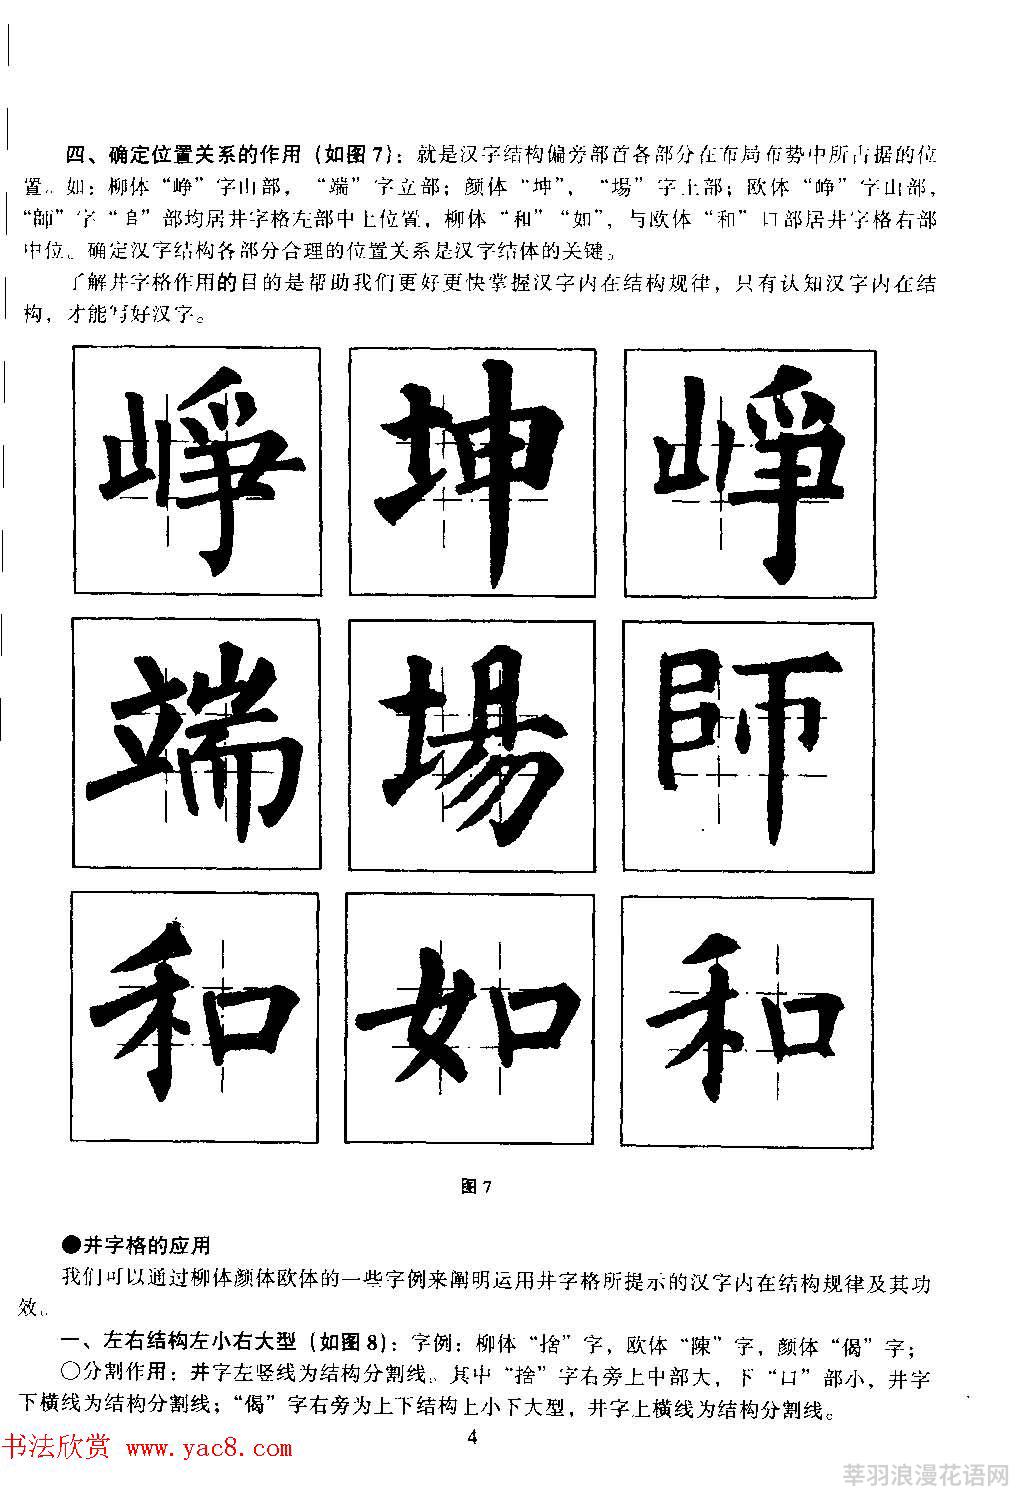 四、确定位置关系的作用（如图7）：就是汉字结构偏旁部首各部分在布局布势中所占据的位
置。如：柳体“峥”字山部，“端”字立部；颜体“坤”，“場”字土部；欧体“峥”字山部，
“師”字“𠂤”部均居井字格左部中上位置，柳体“和”“如”，与欧体“和”口部居井字格右部
中位。确定汉字结构各部分合理的位置关系是汉字结体的关键。
了解井字格作用的目的是帮助我们更好更快掌握汉字内在结构规律，只有认知汉字内在结
构，才能写好汉字。
崢 坤 崢
端 場 師
和 如 和
图7
●井字格的应用
我们可以通过柳体颜体欧体的一些字例来阐明运用井字格所提示的汉字内在结构规律及其功
效。
一、左右结构左小右大型（如图8）：字例：柳体“捨”字，欧体“陳”字，颜体“偈”字；
○分割作用：井字左竖线为结构分割线。其中“捨”字右旁上中部大，下“口”部小，井字
下横线为结构分割线；“偈”字右旁为上下结构上小下大型，井字上横线为结构分割线。
4
书法欣赏 www.yac8.com
莘羽浪漫花语网